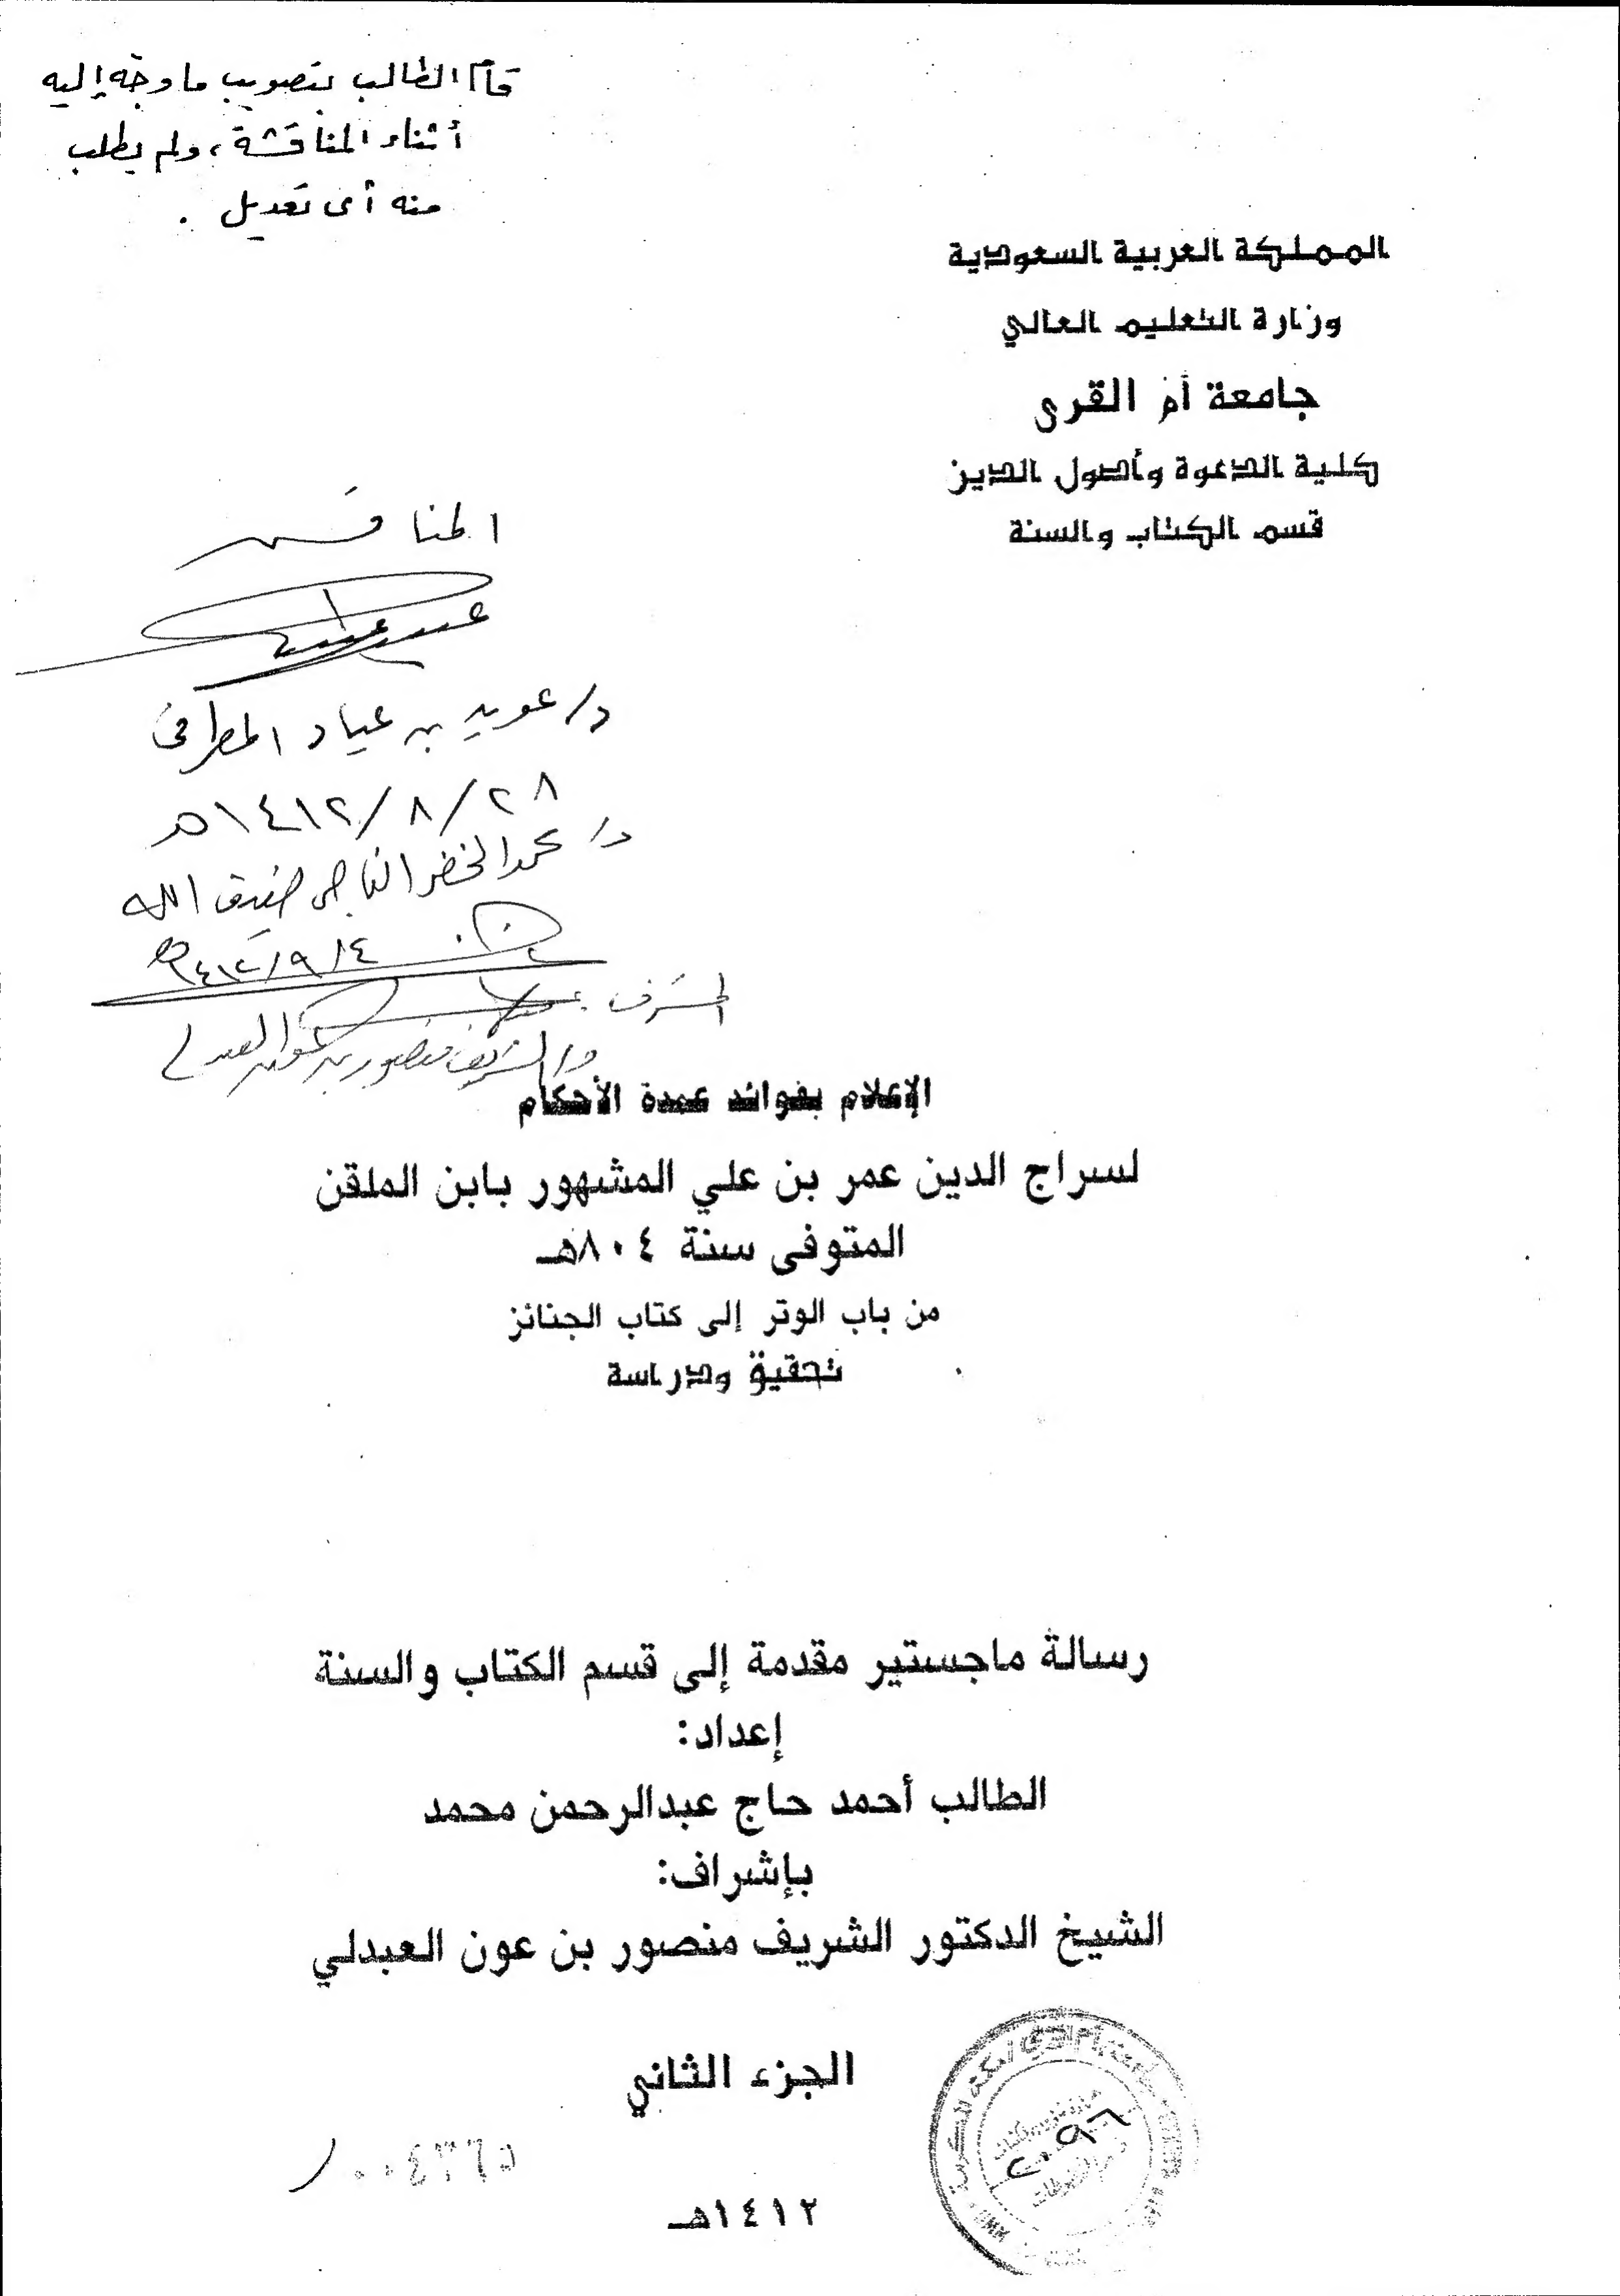 قام الطالب بتصويب ما وجّه إليه
أثناء المناقشة، ولم يطلب
منه أى تعديل .
المملكة العربية السعودية
وزارة التعليم العالي
جامعة أم القرى
كلية الدعوة وأصول الدين
قسم الكتاب والسنة
المناقش
د/ عويد بن عياد المطرفى
٢٨/٨/١٤١٢هـ
د/ محمد الخضر الناجى ضيف الله
١٤١٢/٩/٤هـ
المشرف
د/ الشريف منصور بن عون العبدلي
الإعلام بفوائد عمدة الأحكام
لسراج الدين عمر بن علي المشهور بابن الملقن
المتوفى سنة ٨٠٤هـ
من باب الوتر إلى كتاب الجنائز
تحقيق ودراسة
رسالة ماجستير مقدمة إلى قسم الكتاب والسنة
إعداد:
الطالب أحمد حاج عبدالرحمن محمد
بإشراف:
الشيخ الدكتور الشريف منصور بن عون العبدلي
الجزء الثاني
٠٠٤٣٦٥
١٤١٢هـ